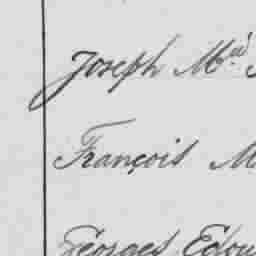 Joseph M
François M
Georges Edou